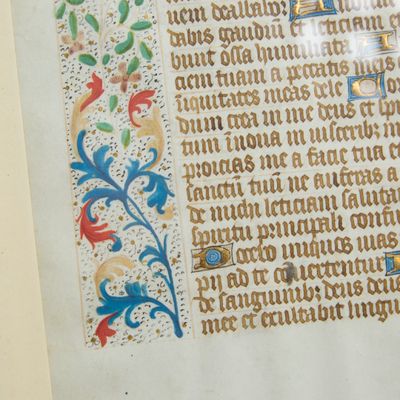 uem dealbabor A
dabis gaudiū et leticiam et
bunt ossa humiliata
ciem tuam a peccatis meis
iniquitates meas dele
dum crea in me deus et spi
tum īnoua in uiscerib; m
proicias me a facie tua et
sanctū tuū ne auferas a
de michi leticiam saluta
spiritu principali confir
Docebo iniquos uias
pij ad te cōuertentur
de sanguinib; deus deus
mee et exultabit lingu